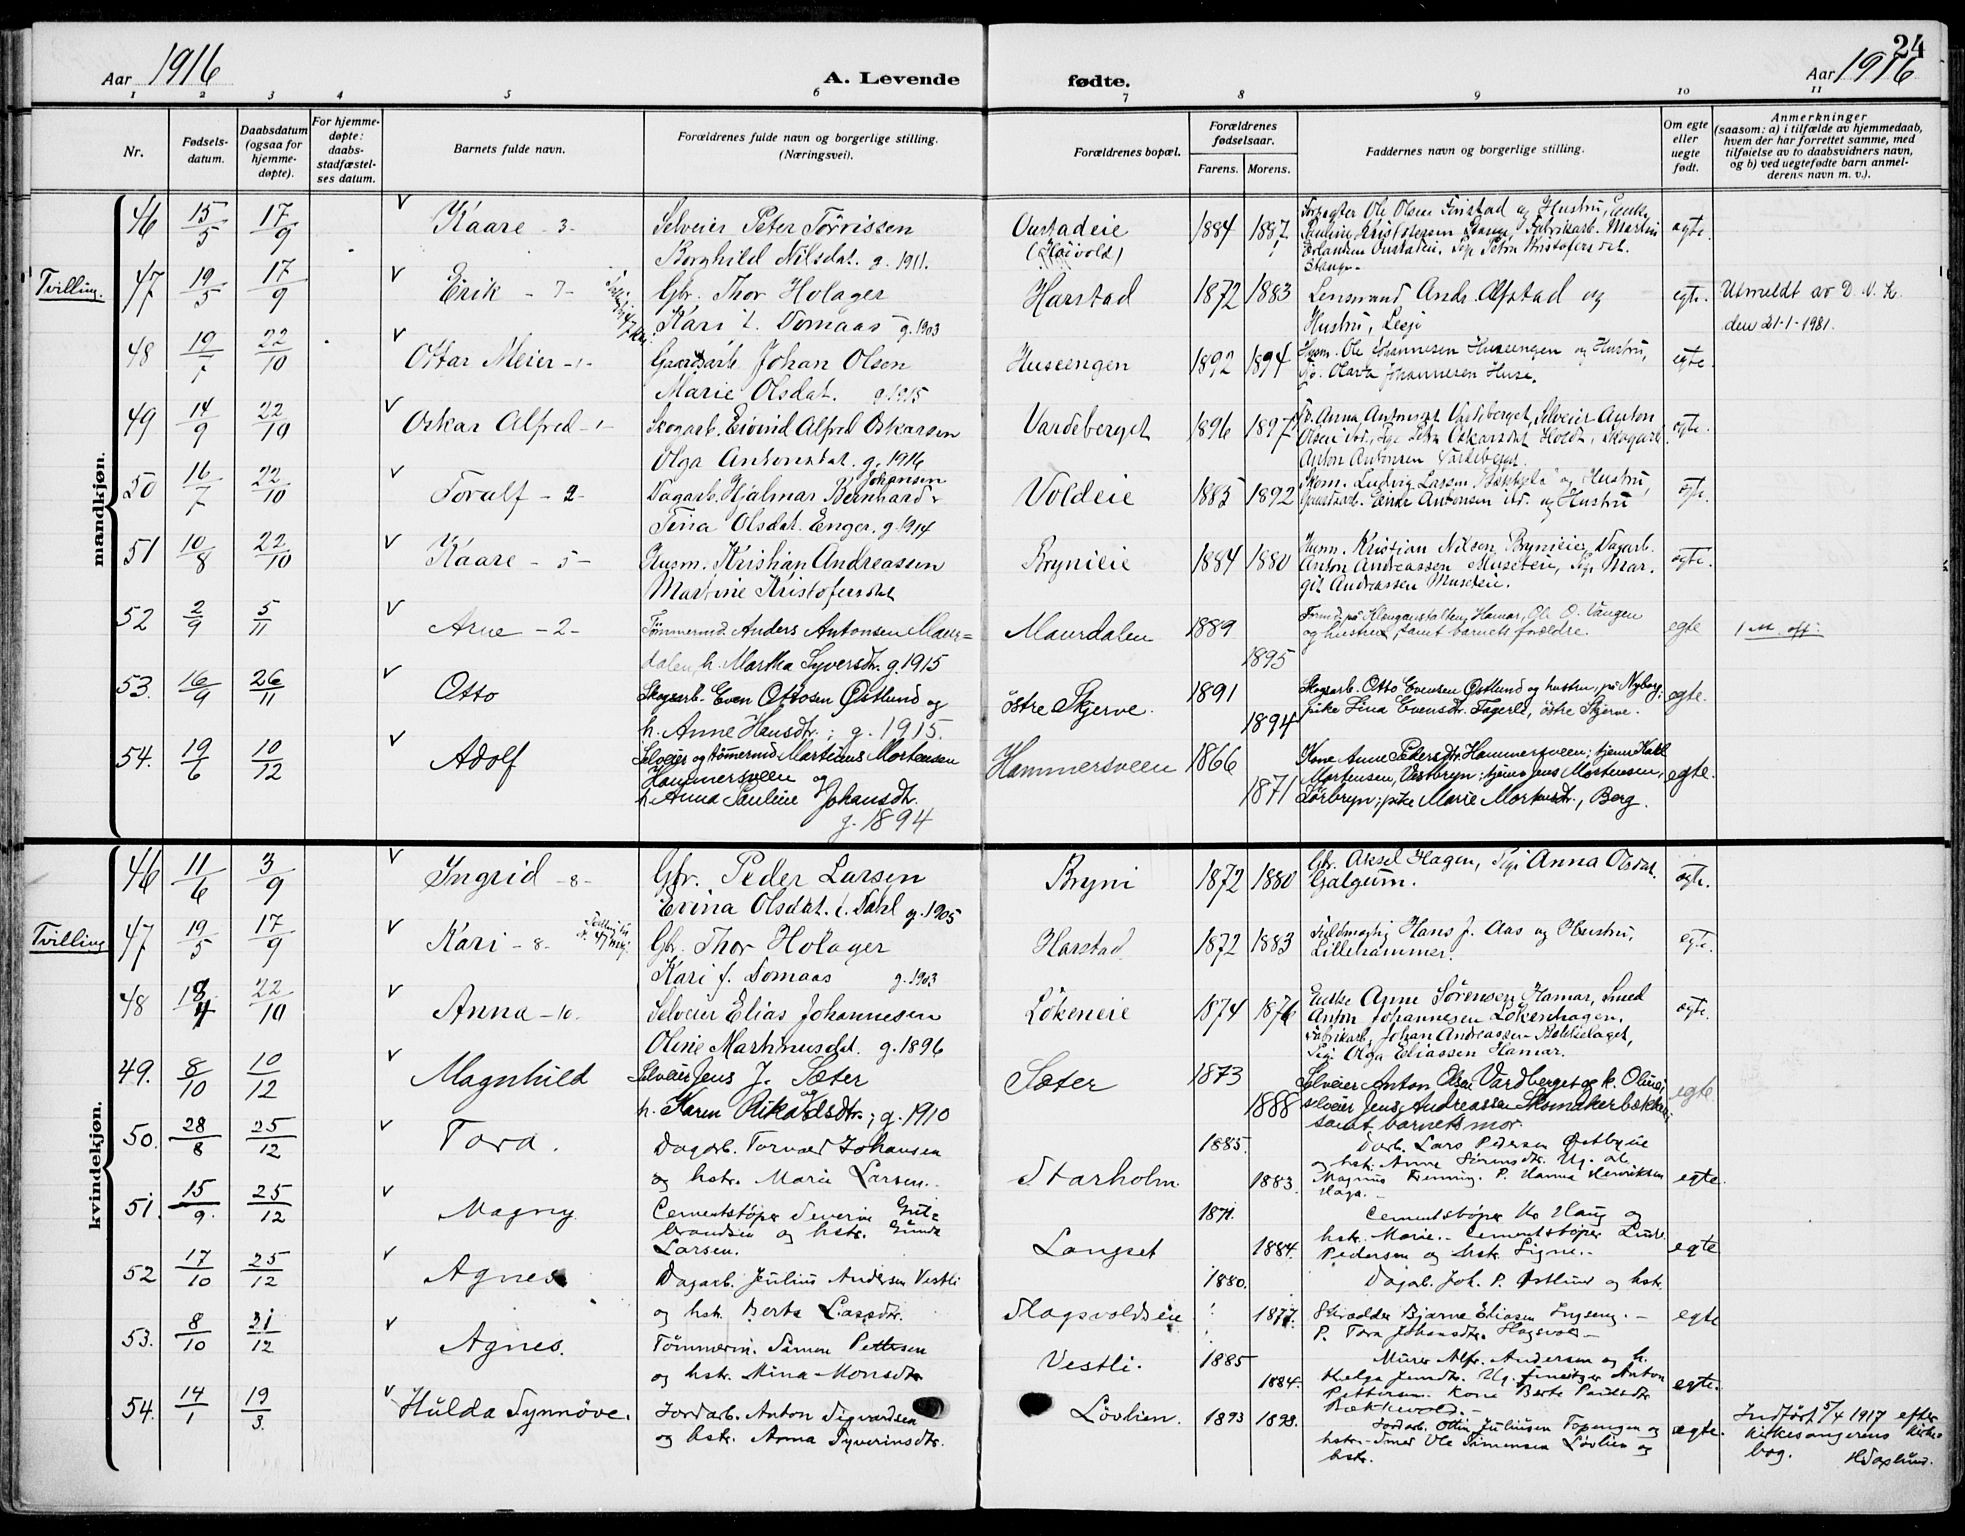 24
Aar 1916 A. Levende fødte. Aar 1916
1 2 3 4 5 6 7 8 9 10 11
Nr.
Fødsels-
datum.
Daabsdatum
(ogsaa for
hjemme-
døpte).
For hjemme-
døpte:
daabs-
stadfæstel-
ses datum.
Barnets fulde navn.
Forældrenes fulde navn og borgerlige stilling.
(Næringsvei).
Forældrenes bopæl.
Forældrenes
fødselsaar.
Farens. Morens.
Faddernes navn og borgerlige stilling.
Om egte
eller
uegte
født.
Anmerkninger
(saasom: a) i tilfælde av hjemmedaab,
hvem der har forrettet samme, med
tilføielse av to daabsvidners navn,
og b) ved uegtefødte barn anmel-
derens navn m. v.).
mandkjøn.
46 15/5 17/9 Kaare - 3 -
Selveier Peter Torvissen
Borghild Nilsdat. g. 1911.
Oustadeie
(Høivold)
1884 1887
egte.
Tvilling.
47 19/5 17/9 Erik - 7 -
Gbr. Thor Holager
Kari f. Domaas g. 1903
Harstad 1872 1883
Lensmand Andr. Alfstad og
Hustru,
egte.
Utmeldt av D. N. K.
den 21-1-1981.
48 19/7 22/10 Ottar Meier - 1 -
Gaardsarb. Johan Olsen
Marie Olsdat. g. 1915
Huseengen 1892 1894
Husm. Ole Johannesen Huseengen og Hustru,
Olarta Johannesen Huse.
egte.
49 14/9 22/10 Oskar Alfred - 1 -
Skogarb. Eivind Alfred Oskarsen
Olga Antonsdat. g. 1916
Vardeberget 1896 1897
Anna Antonsdat Vardeberget, Selveier Anton
Olsen ibd., Pige Petra Oskarsdat Holdt, Skogarb.
Anton Antonsen Vardeberget.
egte.
50 16/7 22/10 Toralf - 2 -
Johansen
Dagarb. Hjalmar Bernhard
Tina Olsdat. Enger. g. 1914
Voldeie 1885 1892
Skom. Ludvig Larsen og Hustru,
Gaardsarb. Einar Antonsen ibd. og Hustru
egte.
51 10/8 22/10 Kaare - 5 -
Husm. Kristian Andreassen
Martine Kristofersdat
Brynieie 1884 1880
Husm. Kristian Nilsen, Brynieie, Dagarb.
Anton Andreassen Museteie, Pige Mar-
git Andreassen Museteie.
egte.
52 2/9 5/11 Arne - 2 -
Tømmermd. Anders Antonsen Maur-
dalen, h. Martha Syversdtr. g. 1915
Maurdalen 1889 1895
Hamar, Ole O. Vangen
og hustru, samt barnets forældre.
egte
1 M. off.
53. 16/9 26/11 Otto
Skogarb. Even Ottosen Østlund og
h. Anne Hansdtr.; g. 1915.
østre Skjerve. 1891 1894
Skogarb. Otto Evensen Østlund og hustru, pr Nyborg;
pike Lina Evensdtr. Fagerli, østre Skjerve.
egte.
54. 19/6 10/12 Adolf
Selveier og tømmermd Martinus Mortensen
Hammersveen og
h. Anna Pauline Johansdtr.
g. 1894
Hammersveen 1866 1871
Kone Anne Pedersdtr. Hammersveen; tjener Karl
Mortensen, Vestbryn; tjener Jens Mortensen,
Sørbryn; pike Marie Mortensdtr., Berg.
egte.
kvindekjøn.
46 11/6 3/9 Ingrid - 8 -
Gbr. Peder Larsen
Evina Olsdat. f. Dahl g. 1905
Bryni 1872 1880
Gbr. Aksel Hagen, Pige Anna Olsdat.
Galgum.
egte.
Tvilling
47 19/5 17/9 Kari - 8 -
Gbr. Thor Holager
Kari f. Domaas g. 1903
Harstad 1872 1883
Fuldmægtig Hans J. Aas og Hustru,
Lillehammer.
egte.
48 22/10 Anna - 10 -
Selveier Elias Johannesen
Oline Martinusdat. g. 1896
Løkeneie 1874 1876
Enke Anne Sørensen Hamar, Smed
Anton Johannesen Løkenhagen,
Fabrikarb. Johan Andreassen
Pige Olga Eliassen Hamar.
egte.
49. 8/10 10/12 Magnhild
Selveier Jens J. Sæter
h. Karen Rikardsdtr.; g. 1910
Sæter 1873 1888
Selveier Anton Olsen Vardberget og k. Oline;
selveier Jens Andreassen Skomakerbækken;
samt barnets mor.
egte.
50. 28/8 25/12 Tora.
Dagarb. Torvald Johansen
og hstr. Marie Larsen.
Starholm. 1885. 1883.
Darb. Lars Pedersen Østbyeie
og hstr. Anne Sørensdtr. Ug. ab.
Magnus Fremming. P. Hanna Henriksen
Haga.
egte.
51. 15/9. 25/12 Magny
Cementstøper Severin Gut-
brandsen og hstr. Gunda
Larsen.
Langset 1871. 1884.
Cementstøper Haug og
hstr. Marie. - Cementstøper
Pedersen og hstr. Signe.
egte
52 17/10 25/12 Agnes
Dagarb. Julius Andersen Vestli
og hstr. Berte Larsdtr.
Slagsvoldseie 1880. 1877.
Dagarb. Joh. P. Østlund og hstr.
Skrædder Bjarne Eliasen Enger. -
P. Tora Johansdtr. Slagsvold -
egte
53. 8/10 31/12 Agnes.
Tømmerm. Simen Pettersen
og hstr. Mina Monsdtr
Vestli. 1885 1884.
Murer Alfr. Andersen og h.
Helga Jensdtr. Ug. Anton
Pettersen. Kone Berte Paulsdtr
Bækkevold. -
egte.
54. 14/1 19/3. Hulda Synnøve.
Jordarb. Anton Sigvardsen
og hstr. Anna Syverinsdtr.
Løvlien. 1893 1893.
Jordarb. Otto Juliusen Topengen og
hstr. - Smed Ole Simensen Løvlien og
hstr.
egte.
Indført 5/4 1917 efter
kirkesangerens kirke-
bog.